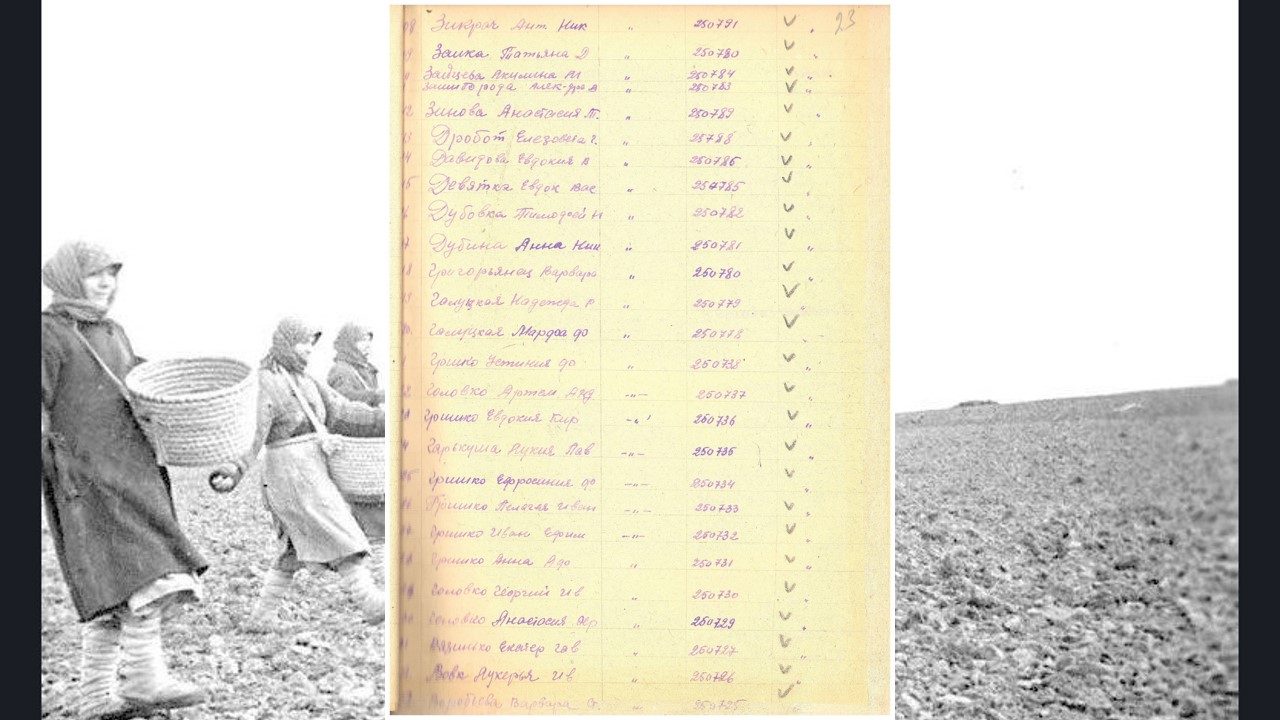 23
Зикрач Ант Ник " 250791
Заика Татьяна Д " 250790
Зайцева Акилина М " 250784
" 250783
12 Зинова Анастасия Т. " 250789
13 Дробот Елезовета Г. " 25788
14 Давидова Евдокия В " 250786
15 Девятка Евдок Вас " 250785
Дубовка Тимофей Н " 250782
17 Дубина Анна Ник " 250781
18 Григорьянец Варвара " 250780
19 Галуцкая Надежда Р " 250779
Галуцкая Марфа Фо " 250778
Гришко Устиния Фо " 250738
Головко Артем " 250737
Гришко Евдокия Кир " 250736
Гаркуша Лукия Пав -"- 250735
Гришко Ефросиния Фо -"- 250734
Гришко Пелагея Иван -"- 250733
Гришко Иван Ефим -"- 250732
Гришко Анна " 250731
Головко Георгий Ив " 250730
Головко Анастасия " 250729
Екатер Гав " 250727
Вовк Лукерья Ив " 250726
Воробьева Варвара " 250725